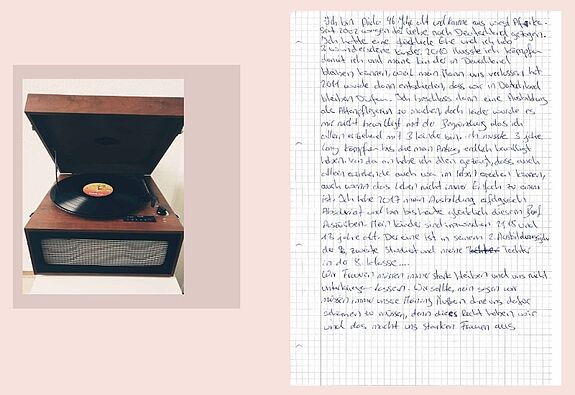 Ich bin Aida 46 Jahre alt und komme aus west Afrika.
Seit 2002 wegen der Liebe nach Deutschland gezogen.
Ich hatte eine glückliche Ehe und ich habe
2 wunderschöne Kinder. 2010 musste ich kämpfen
damit ich und meine kinder in Deutschland
bleiben können, weil mein Mann uns verlassen hat
2011 wurde dann entschieden, dass wir in Deutschland
bleiben Dürfen. Ich beschloss dann eine Ausbildung
als Altenpflegerin zu machen, doch leider wurde es
mir nicht bewilligt mit der Begründung das ich
allein erziehend mit 3 kinder bin. ich musste 3 jahre
lang kämpfen bis die mein Antrag endlich bewilligt
haben. Von da an habe ich allen gezeigt, dass auch
allein erziehende auch was im leben erreichen können,
auch wenn das leben nicht immer Einfach zu einem
ist. Ich habe 2017 mein Ausbildung erfolgreich
Absolviert und bin bis heute glücklich diesen Beruf
Auszuüben. Mein kinder sind inzwischen 21, 18 und
13 jahre alt. Der eine ist in seinem 2. Ausbildungsjahr
der zweite Studiert und meine Tochter
in der 8. klasse....
Wir Frauen müssen immer stark bleiben und uns nicht
unterkriegen lassen. Wir sollten nein sagen wir
müssen immer unsere Meinung Äußern ohne uns dafür
schämen zu müssen, denn dieses Recht haben wir
und das macht uns starken Frauen aus